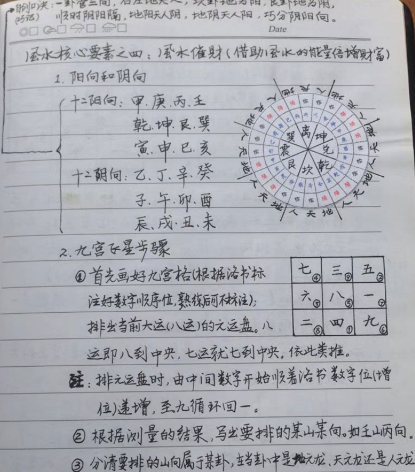 顺时阴阳隔，地阳天人阴，地阴天人阳，巧分阴阳向。
Date
风水核心要素之四：风水催财（借助风水的能量倍增财富）
1. 阳向和阴向
十二阳向：甲.庚.丙.壬
乾.坤.艮.巽
寅.申.巳.亥
十二阴向：乙.丁.辛.癸
子.午.卯.酉
辰.戌.丑.未
离 坤 兑 乾 坎 艮 震 巽
2. 九宫飞星步骤
① 首先画好九宫格（根据洛书标
注好数字顺序位，熟练后可不标注）；
排出当前大运（八运）的元运盘。八
运即八到中央，七运就七到中央。依此类推。
七④ 三⑨ 五②
六③ 八⑤ 一⑦
二⑧ 四① 九⑥
注：排元运盘时，由中间数字开始顺着洛书数字位（增
位）递增，至九循环回一。
② 根据测量的结果，写出要排的某山某向。如壬山丙向。
③ 分清要排的山向属于某卦，在当卦中是地元龙、天元龙还是人元龙